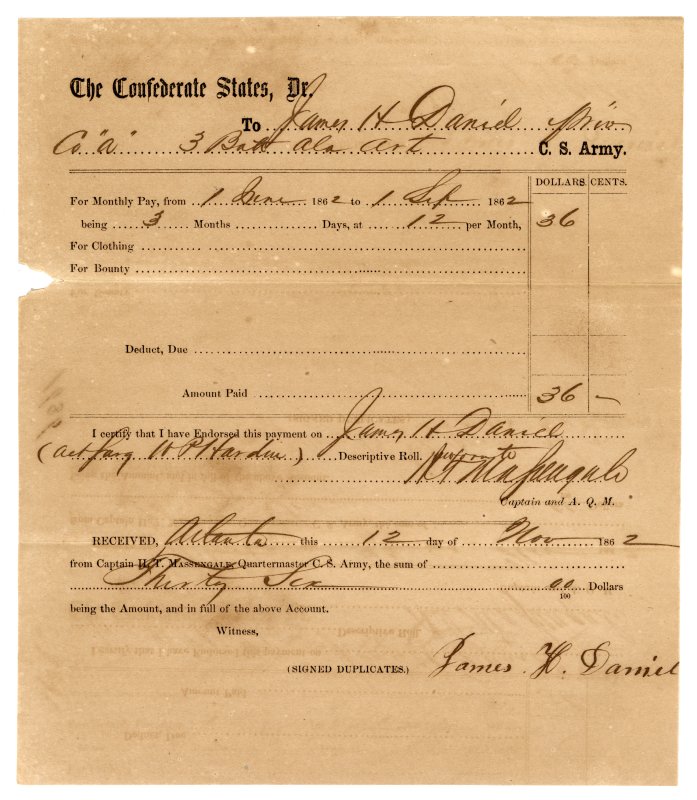 The Confederate States, Dr.
To James H Daniel Priv
Co "A" 3 Batt Ala Art C. S. Army.
DOLLARS. CENTS.
For Monthly Pay, from 1 June 1862 to 1 Sep 1862
being 3 Months Days, at 12 per Month, 36
For Clothing
For Bounty
Deduct, Due
Amount Paid 36 —
I certify that I have Endorsed this payment on James H Daniel
(act Surg W P Hardin) Descriptive Roll.
H T Massengale
Captain and A. Q. M.
RECEIVED, Atlanta this 12 day of Nov 1862
from Captain H. T. MASSENGALE, Quartermaster C. S. Army, the sum of
Thirty Six 00/100 Dollars
being the Amount, and in full of the above Account.
Witness,
(SIGNED DUPLICATES.) James H. Daniel